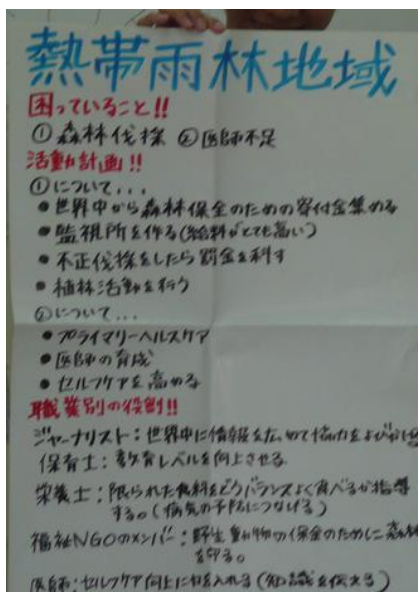 熱帯雨林地域
困っていること!!
① 森林伐採 ② 医師不足
活動計画!!
①について...
● 世界中から森林保全のための寄付金集める
● 監視所を作る(給料がとても高い)
● 不正伐採をしたら罰金を科す
● 植林活動を行う
②について...
● プライマリーヘルスケア
● 医師の育成
● セルフケアを高める
職業別の役割!!
ジャーナリスト：世界中に情報を広めて協力をよびかける
保育士：教育レベルを向上させる
栄養士：限られた食料をどうバランスよく食べるか指導
する。(病気の予防につなげる)
福祉NGOのメンバー：野生動物の保全のために森林
を守る。
医師：セルフケア向上に力を入れる(知識を伝える)